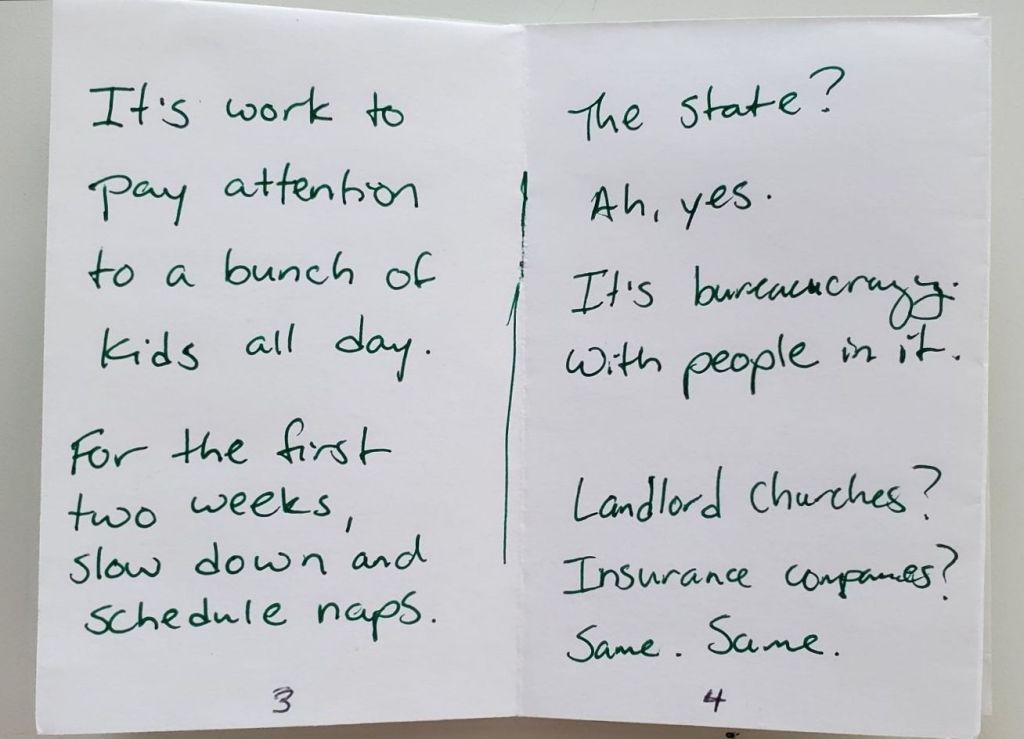 It's work to
pay attention
to a bunch of
kids all day.
For the first
two weeks,
slow down and
schedule naps.
3
The state?
Ah, yes.
It's bureaucrazy.
With people in it.
Landlord churches?
Insurance companies?
Same. Same.
4